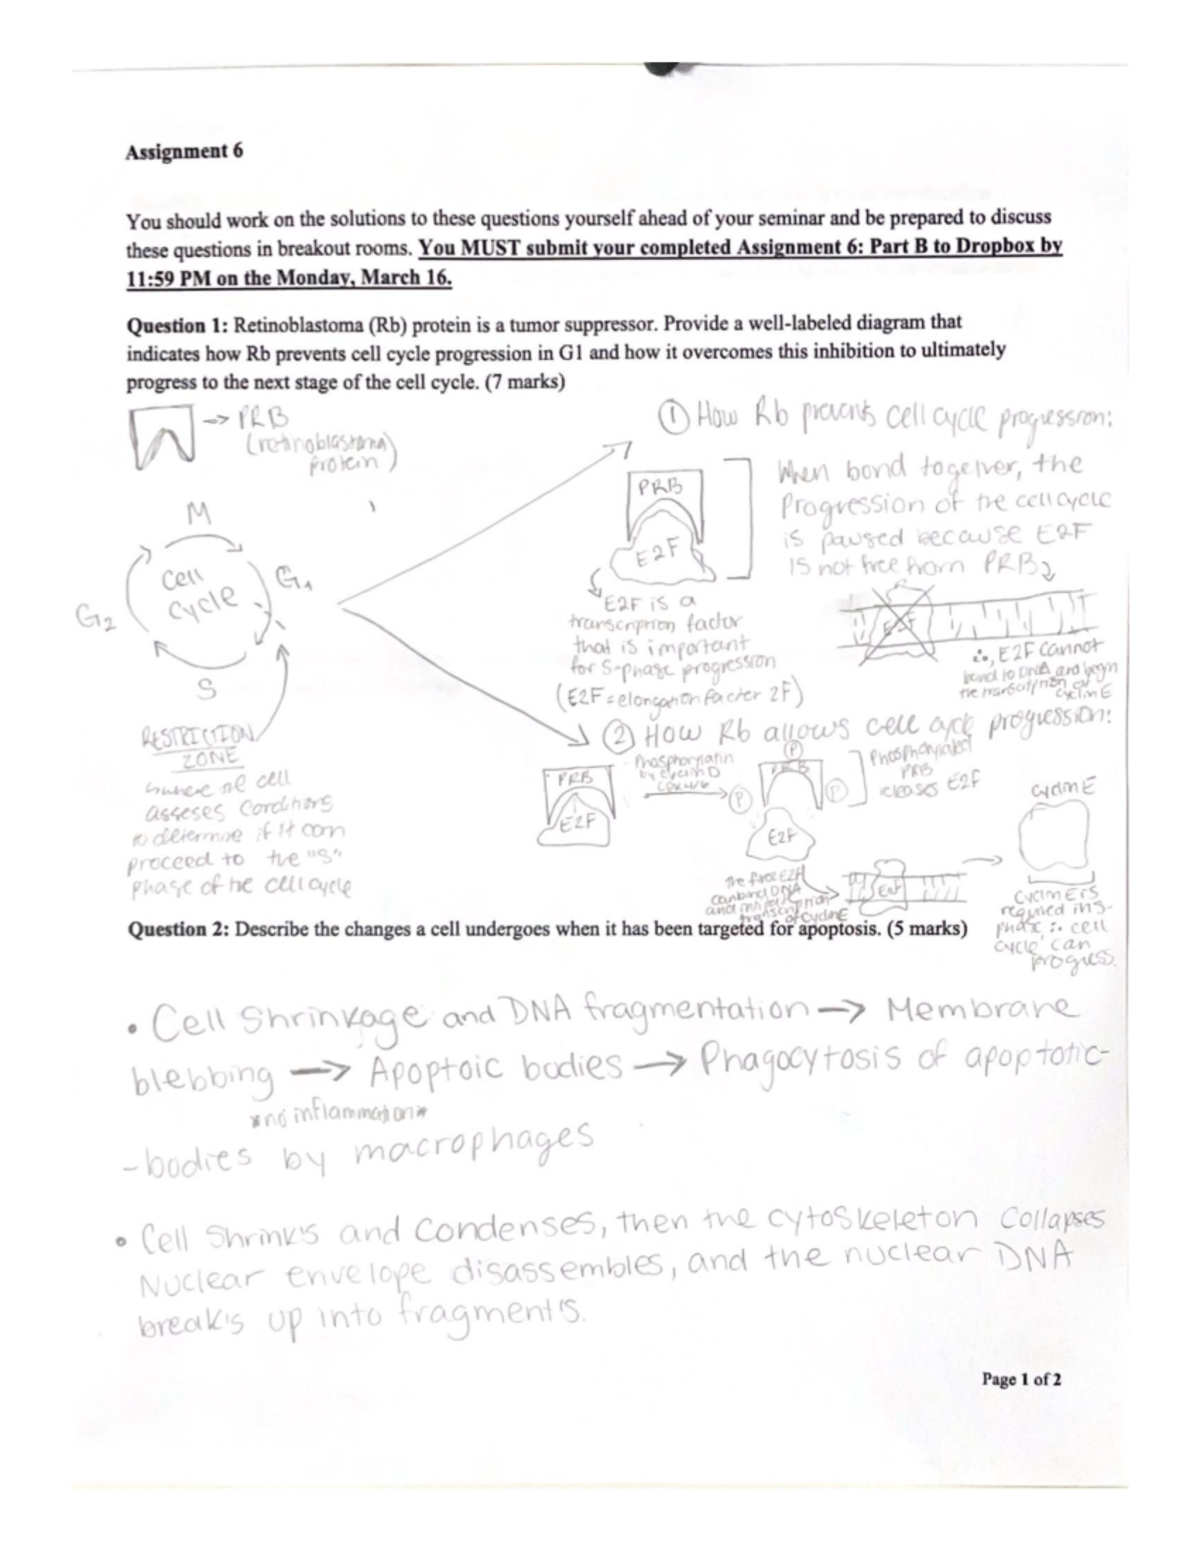 Assignment 6
You should work on the solutions to these questions yourself ahead of your seminar and be prepared to discuss
these questions in breakout rooms. You MUST submit your completed Assignment 6: Part B to Dropbox by
11:59 PM on the Monday, March 16.
Question 1: Retinoblastoma (Rb) protein is a tumor suppressor. Provide a well-labeled diagram that
indicates how Rb prevents cell cycle progression in G1 and how it overcomes this inhibition to ultimately
progress to the next stage of the cell cycle. (7 marks)
→ PRB
(retinoblastoma)
protein
M
G1
S
G2
Cell
Cycle
RESTRICTION
ZONE
where the cell
asseses conditions
to determine if it can
proceed to the "S"
phase of the cell cycle
① How Rb prevents cell cycle progression:
PRB
E2F
When bond together, the
Progression of the cell cycle
is paused because E2F
is not free from PRB
E2F is a
transcription factor
that is important
for S-phase progression
(E2F = elongation factor 2F)
E2F
∴, E2F cannot
bond to DNA and begin
the transcription of
cyclin E
② How Rb allows cell cycle progression:
PRB
E2F
Phosphorylatin
by cyclin D
P
P
PRB
P
E2F
Phosphorylated
PRB
releases E2F
The free E2F
can bind DNA
and initiate
transcription
of cyclin E
E2F
cyclin E
cyclin E is
required in S-
phase ∴ cell
cycle can
progress.
Question 2: Describe the changes a cell undergoes when it has been targeted for apoptosis. (5 marks)
• Cell Shrinkage and DNA fragmentation → Membrane
blebbing → Apoptoic bodies → Phagocytosis of apoptotic-
*no inflammation*
-bodies by macrophages
• Cell Shrinks and condenses, then the cytoskeleton collapses
Nuclear envelope disassembles, and the nuclear DNA
breaks up into fragments.
Page 1 of 2